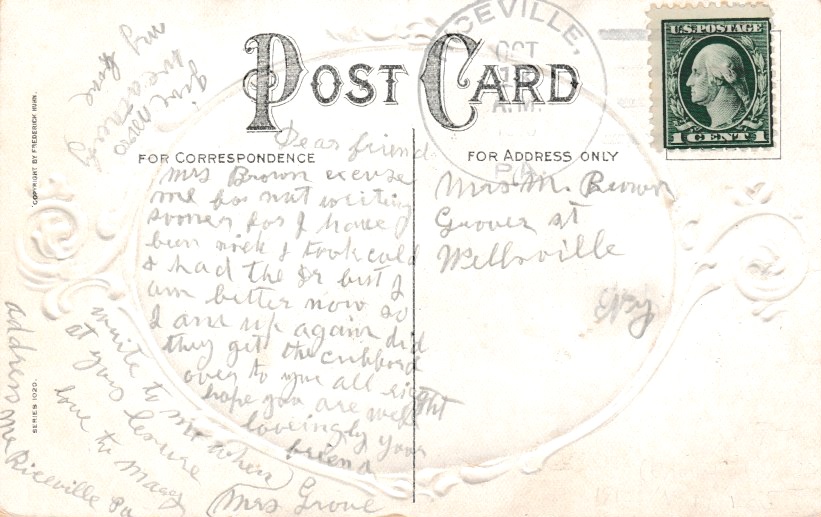 POST CARD
FOR CORRESPONDENCE
FOR ADDRESS ONLY
U.S. POSTAGE
1 CENT 1
CEVILLE,
OCT
A.M.
PA.
COPYRIGHT BY FREDERICK HUHN.
SERIES 1029.
Dear friend
Mrs Brown excuse
me for not writing
sooner for I have
bun sick I took cold
& had the Gr but I
am better now so
I am up again did
they get the cubbord
over to you all right
hope you are well
loveingly your
friend
Mrs Grove
write to me when
at your lesure
love to Mary
address me
Riceville Pa
give
my love
Mrs M. Brown
Grover st
Wellsville
N.Y